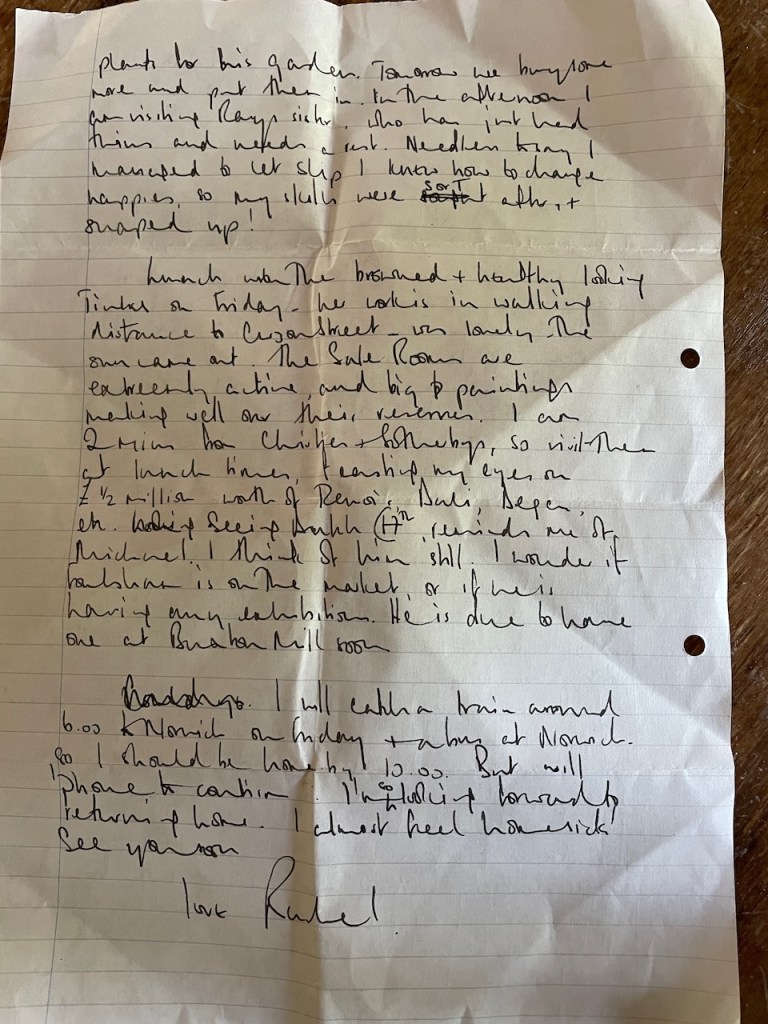 plants for his garden. Tomorrow we buy some
more and put them in. In the afternoon I
am visiting Rays sister, who has just had
twins and needs a rest. Needless to say I
managed to let slip I know how to change
nappies, so my skills were sort after, +
snapped up!
Lunch with the browned + healthy looking
on Friday - her work is in walking
distance to Curzon Street - was lovely. The
sun came out. The Sale Rooms are
extremely active, and big paintings
making well over their reserves. I am
2 mins from Christies + Sothebys, so visit them
at lunch times, feasting my eyes on
£ 1/2 million worth of Renoir, Dali, Degas,
etc. Seeing reminds me of
Michael. I think of him still. I wonder if
is on the market, or if he is
having any exhibitions. He is due to have
one at Mill soon
I will catch a train around
6.00 to Norwich on Friday + a bus at Norwich.
so I should be home by 10.00. But will
phone to confirm. I'm so looking forward to
returning home. I almost feel homesick
See you soon
love Rachel